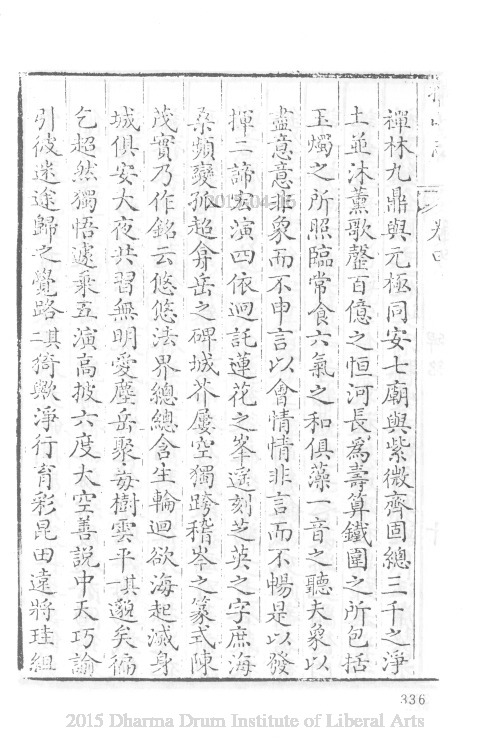 禪林九鼎與元極同安七廟與紫微齊固總三千之淨
土並沐薰歌罄百億之恒河長為壽算鐵圍之所包括
玉燭之所照臨常食六氣之和俱藻一音之聽夫象以
盡意意非象而不申言以會情情非言而不暢是以發
揮二諦宏演四依迴託蓮花之峯遥刻芝英之字庶海
桑頻變孤超弇岳之碑城芥屢空獨跨稽岑之篆式陳
茂實乃作銘云悠悠法界總總含生輪迴欲海起滅身
城俱安大夜共習無明愛塵岳聚毒樹雲平其一邈矣徧
乞超然獨悟遽乘五演高披六度大空善説中天巧諭
引彼迷途歸之覺路其二猗歟淨行育彩昆田遠將珪組
卷四
336
2015 Dharma Drum Institute of Liberal Arts